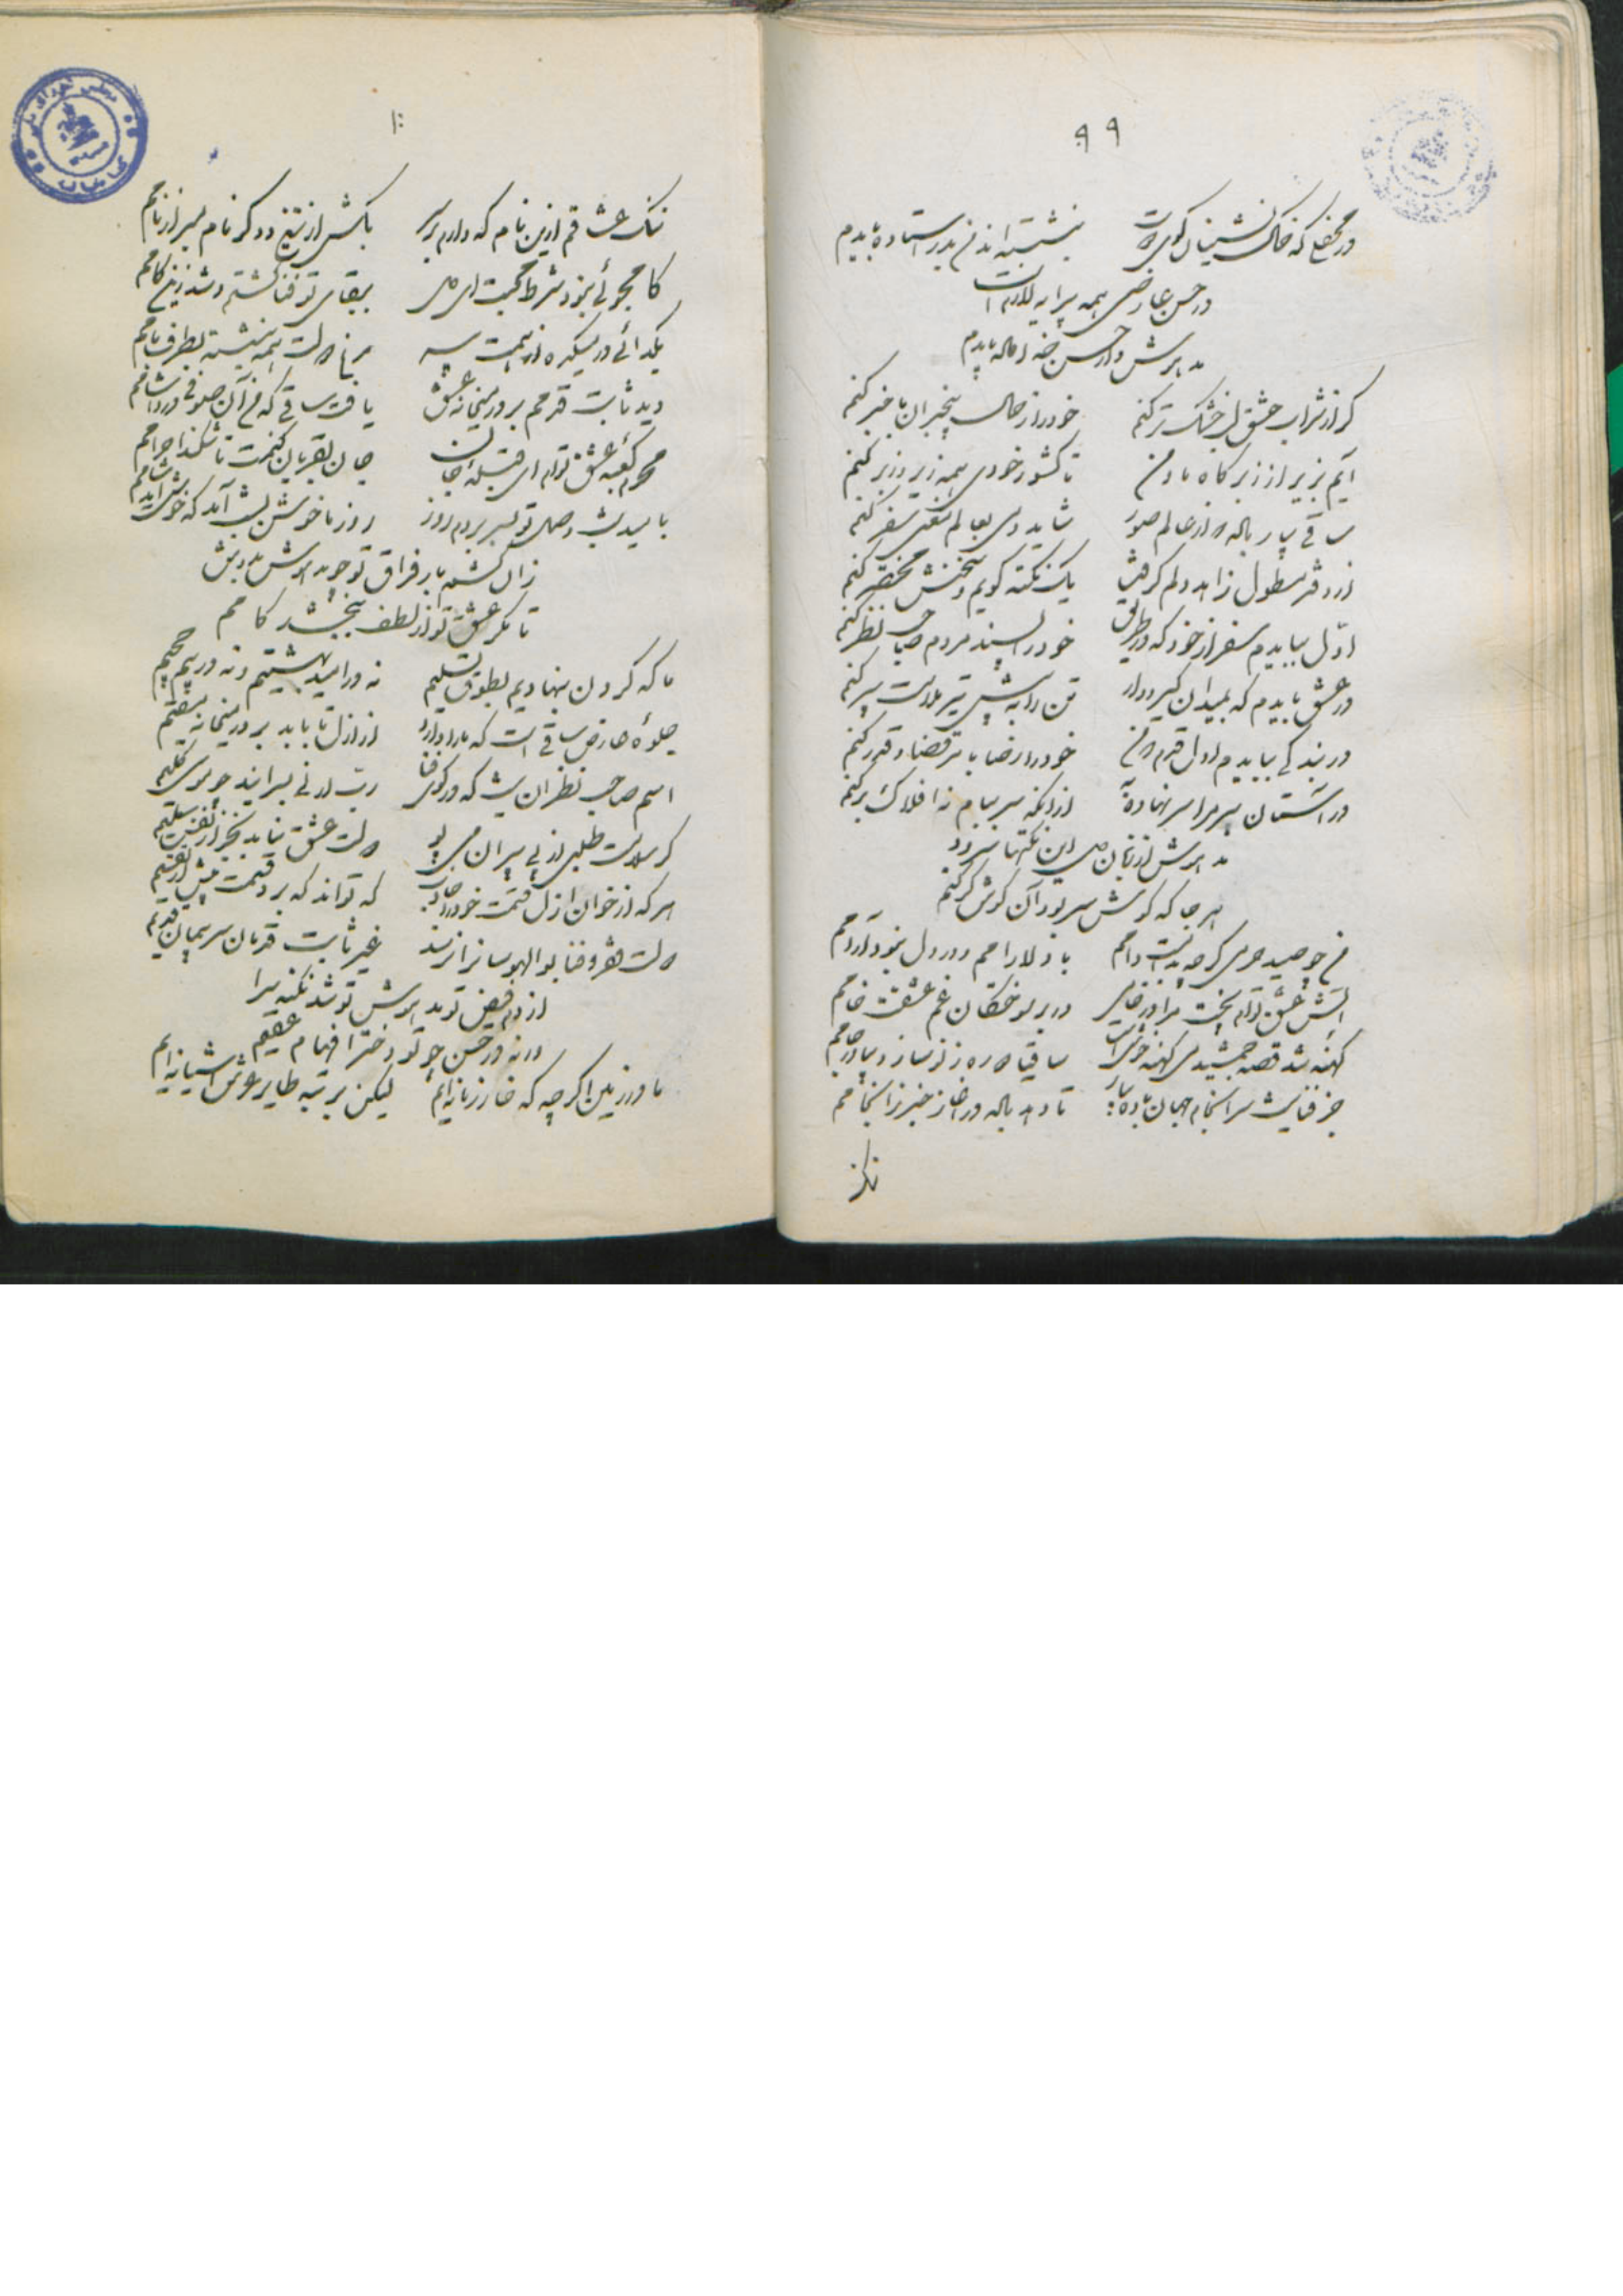 ۹۹
در محفلی که خاک نشینان کوی دوست
بنشسته اند من بدر استاده بایدم
در حسن عارضی همه پیرایه لازم است
مدهوش در حسن خداداده بایدم
گر از شراب عشق لب خشک تر کنم
خود را ز حال بیخبران با خبر کنم
آیم بزیر از زبر کاه ما و من
تا کشور خودی همه زیر و زبر کنم
ساقی بیار باده که از عالم صور
شاید دمی بعالم معنی سفر کنم
از دفتر مطول زاهد دلم گرفت
یک نکته گویم و سخنش مختصر کنم
اول ببایدم سفر از خود که در طریق
خود را پسند مردم صاحب نظر کنم
در عشق بایدم که بمیدان گیر و دار
تن را به پیش تیر ملامت سپر کنم
در بندگی ببایدم اول قدم که من
خود را رضا بامر قضا و قدر کنم
در آستان پیر مرا سر نهاده به
از آنکه سر ببام نه افلاک بر کنم
مدهوش از زبان من این نکته‌ها سزد
هر جا که گوش سر بود آن گوش کر کنم
من چو صید حرمی گرچه به بست دامم
با دلارامم و در دل نبود آرامم
آتش عشق توام پخت مرا ورنه
در بر سوختگان غم عشقت خامم
کهنه شد قصه جمشید می کهنه خوش است
ساقیا دوره ز نو ساز و بیاور جامم
جز فنا نیست سرانجام جهان باده بیار
تا دهد باده در آغاز خبر ز انجامم
ننگ
۱۰۰
ننگ عشاقم ازین نام که دارم بر سر
بکش از تیغ و دگر نام مبر از نامم
کامجوئی نبود شرط محبت ای دل
ببقای تو فنا گشتم و شد زین کامم
بگدائی در میکده از همت پیر
دولت همه بنشسته بطرف بامم
دید ثابت قدمم بر در میخانه عشق
یافت ساقی که من آن صوفی درد آشامم
محرم کعبه عشق توام ای قبله جان
جان بقربان کنمت تا شکند احرامم
بامید شب وصل تو بسر بردم روز
روز ناخوش بشب آمد که خوش آید شامم
زان کشم بار فراق تو چو مدهوش بدوش
تا مگر عشق تو از لطف ببخشد کامم
ما که گردن بنهادیم بطوق تسلیم
نه در امید بهشتیم و نه در بیم جحیم
جلوه عارض ساقی است که ما را دارد
از ازل تا بابد بر در میخانه مقیم
اسم صاحب نظران نیست که در کوی فنا
رب ارنی بسرایند چو موسی کلیم
گر سلامت طلبی از پی پیران میپو
دولت عشق نیاید بجز از نفس سلیم
هر که از خوان ازل قسمت خود را دریافت
که تواند که برد قسمت بیش از تقسیم
دولت فقر و فنا بوالهوسانرا نرسد
غیر ثابت قدمان سر پیمان قدیم
از دم فیض تو مدهوش تو شد نکته سرا
ورنه در حسن چو تو دختر افهام عقیم
ما در زمین اگرچه که خار زمانه‌ایم
لیکن برتبه طایر عرش آشیانه‌ایم